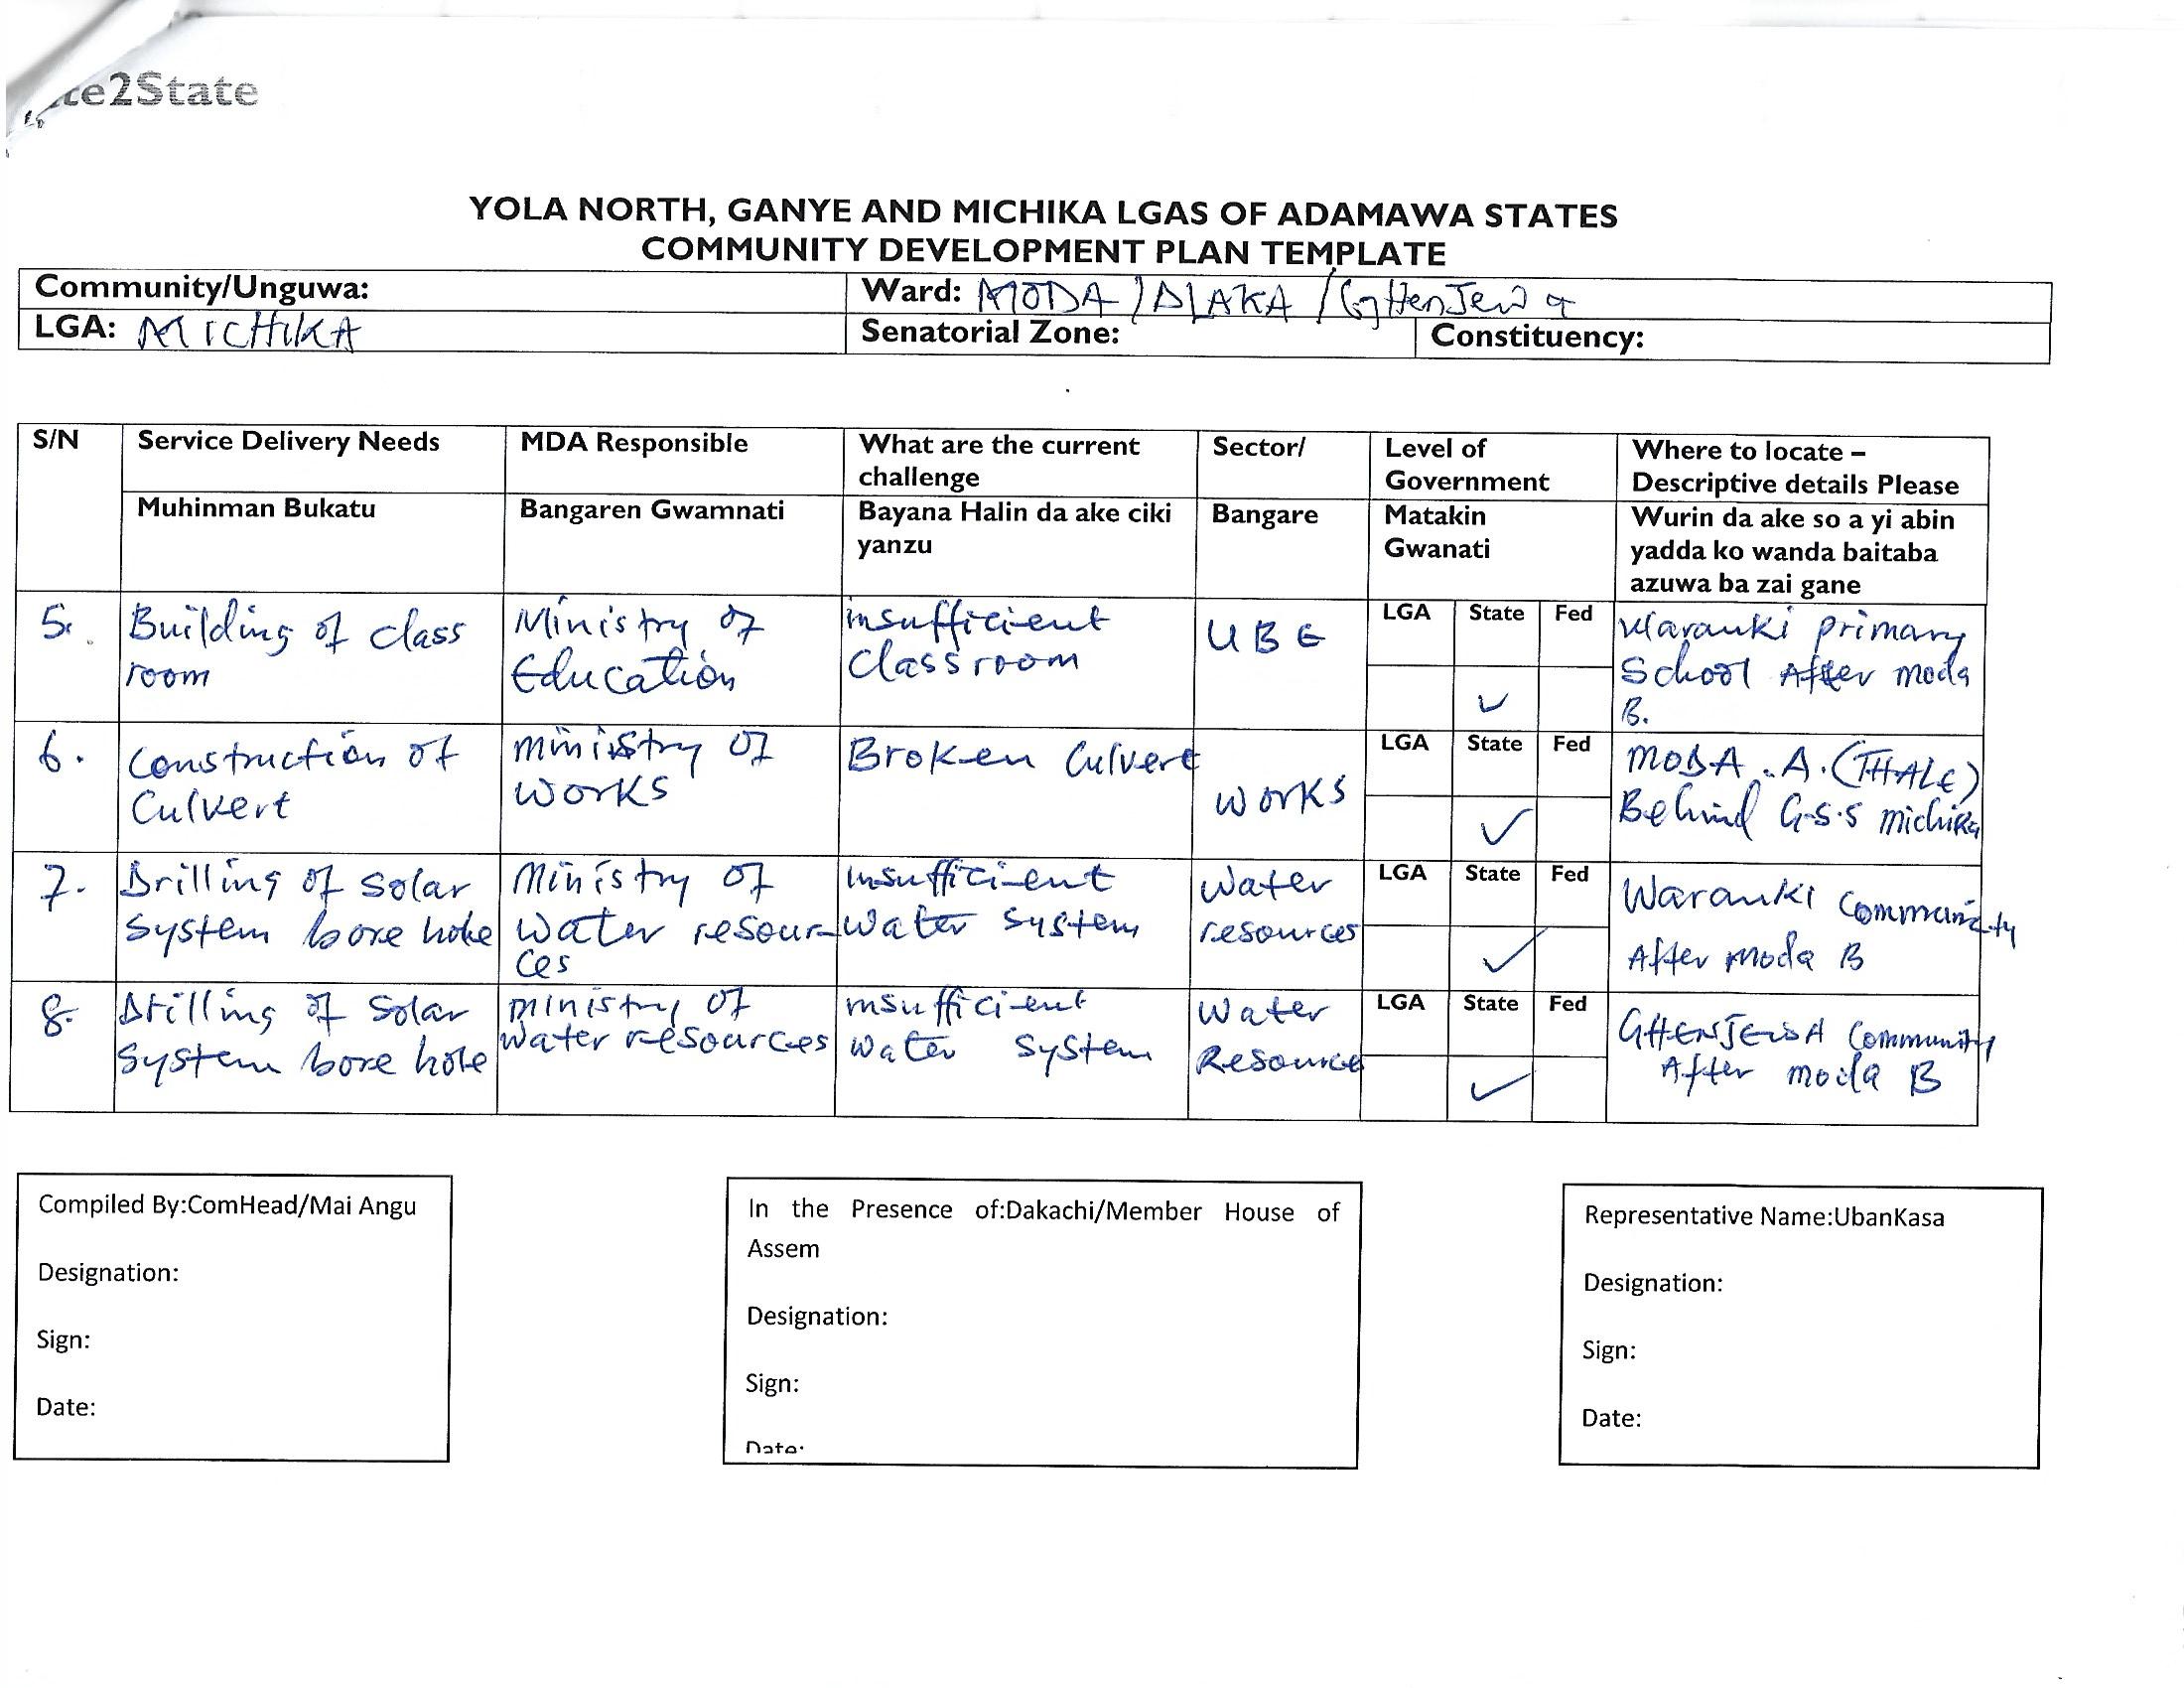 te2State
YOLA NORTH, GANYE AND MICHIKA LGAS OF ADAMAWA STATES
COMMUNITY DEVELOPMENT PLAN TEMPLATE
Community/Unguwa:
Ward: MODA / DLAKA / GHenJewa
LGA: MICHIKA
Senatorial Zone:
Constituency:
S/N
Service Delivery Needs
MDA Responsible
What are the current
challenge
Sector/
Level of
Government
Where to locate –
Descriptive details Please
Muhinman Bukatu
Bangaren Gwamnati
Bayana Halin da ake ciki
yanzu
Bangare
Matakin
Gwanati
Wurin da ake so a yi abin
yadda ko wanda baitaba
azuwa ba zai gane
5.
Building of class
room
Ministry of
Education
insufficient
classroom
UBE
LGA State Fed
✓
Waranki primary
School After moda
B.
6.
Construction of
Culvert
ministry of
works
Broken Culvert
works
LGA State Fed
✓
MODA . A. (THALE)
Behind G.S.S michika
7.
Drilling of solar
System bore hole
Ministry of
water resour-
ces
insufficient
water system
Water
resources
LGA State Fed
✓
Waranki community
After moda B
8.
Drilling of Solar
System bore hole
ministry of
water resources
insufficient
water system
Water
Resource
LGA State Fed
✓
GHENJEWA Community
After moda B
Compiled By:ComHead/Mai Angu
Designation:
Sign:
Date:
In the Presence of:Dakachi/Member House of
Assem
Designation:
Sign:
Date:
Representative Name:UbanKasa
Designation:
Sign:
Date: